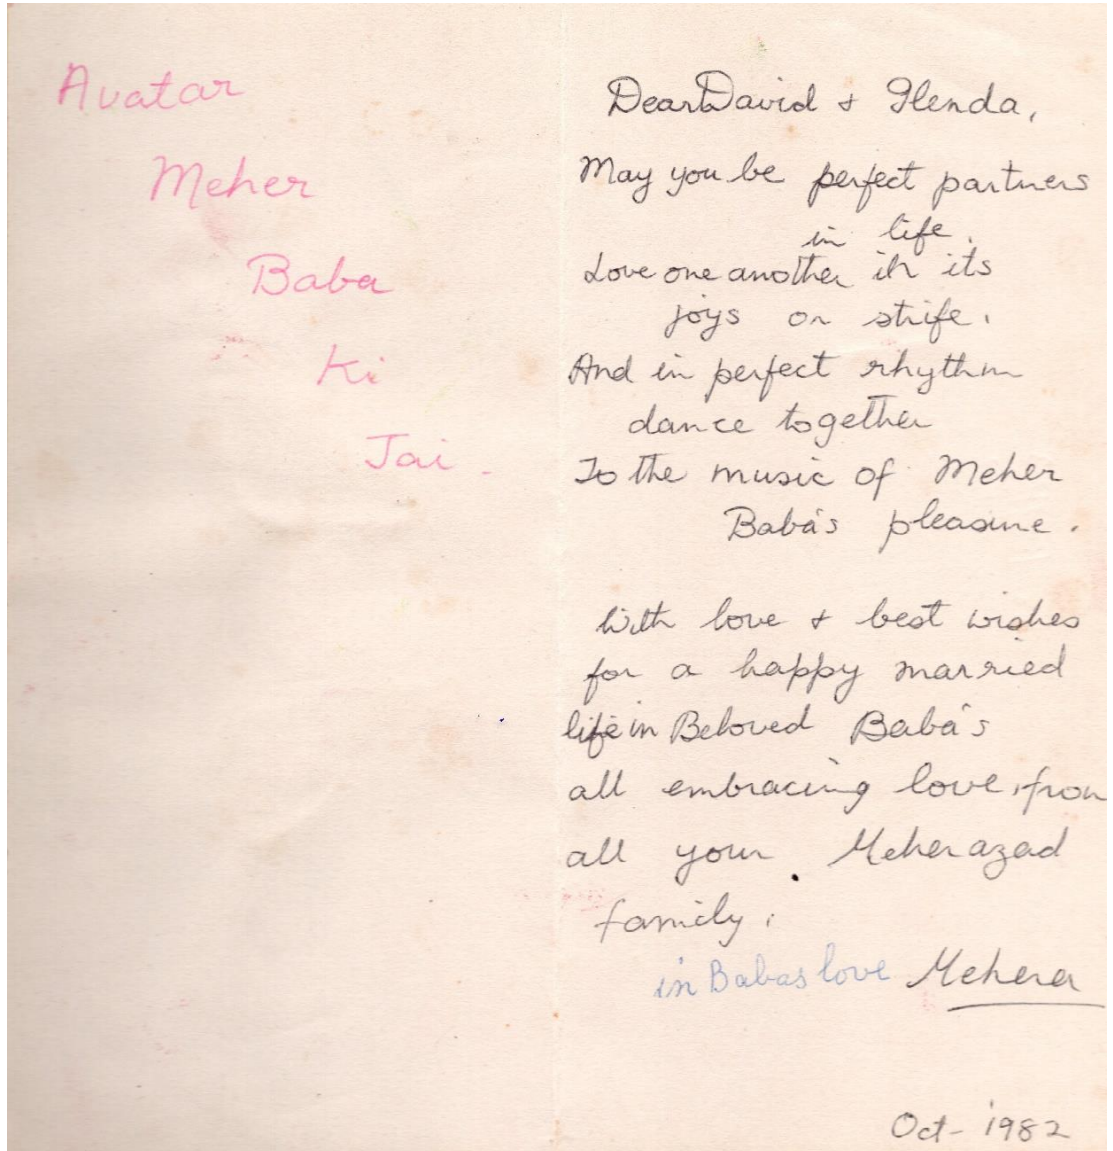 Avatar
Meher
Baba
Ki
Jai.
Dear David & Glenda,
May you be perfect partners
in life.
Love one another in its
joys or strife.
And in perfect rhythm
dance together
To the music of Meher
Baba's pleasure.
With love & best wishes
for a happy married
life in Beloved Baba's
all embracing love, from
all your Meherazad
family.
in Babas love Mehera
Oct- 1982